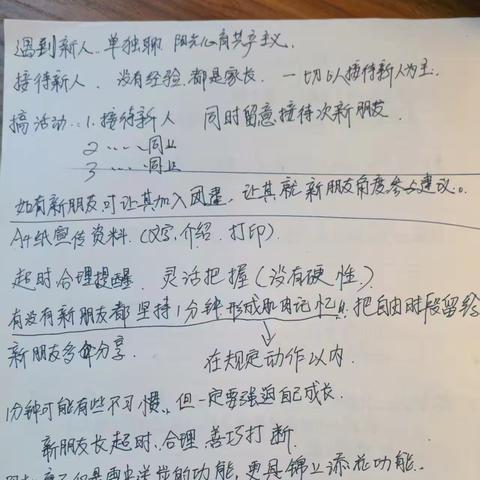 遇到新人..单独聊 阳光心有共产主义.
接待新人. 没有经验.都是家长. 一切以接待新人为主.
搞活动..1.接待新人 同时留意接待次新朋友.
2……同上
3……同上
如有新朋友可让其加入团, 让其就新朋友角度参与建议.
A4纸宣传资料.(文字,介绍.打印).
超时合理提醒. 灵活把握(没有硬性.)
有没有新朋友都坚持1分钟形成肌肉记忆!把自由时段留给
新朋友多分享. 在规定动作以内.
1分钟可能有些不习惯.但一定要强迫自己成长.
新朋友长超时.合理.善巧打断.
不仅是雪中送炭的功能,更具锦上添花功能.